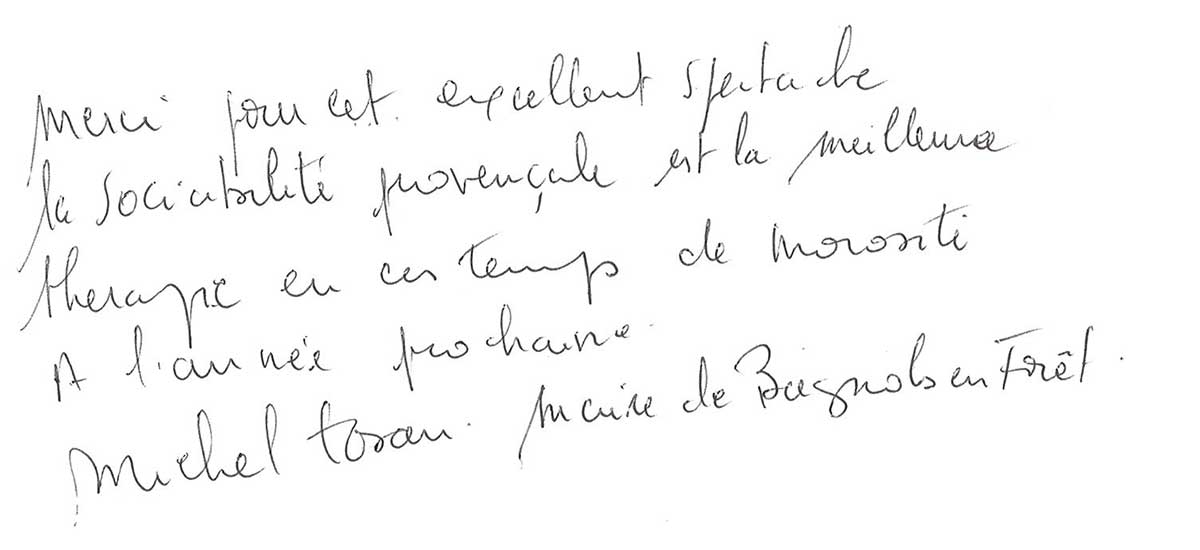 Merci pour cet excellent spectacle
la sociabilité provençale est la meilleure
therapie en ces temps de morosité
A l'année prochaine.
Michel Tosan. Maire de Bagnols en Forêt.